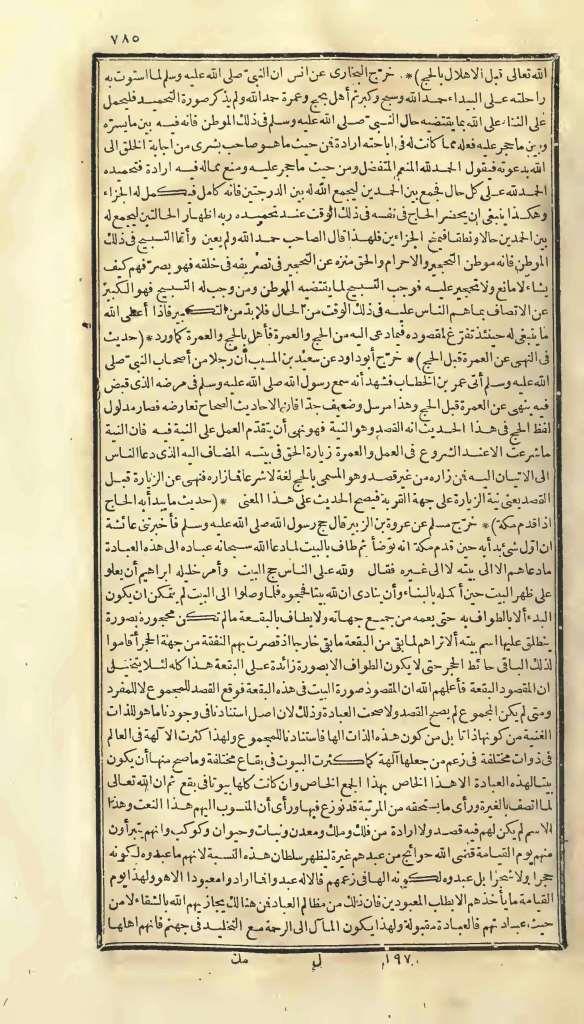 ٧٨٥
الله تعالى قبل الاهلال بالحج)* . خرّج البخارى عن انس ان النبىّ صلى الله عليه وسلم لما استوت به
راحلته على البيداء حمد الله وسبح وكبر ثم أهل بحج وعمرة حمد الله ولم يذكر صورة التحميد فليحمل
على الثناء على الله بما يقتضيه حال النبىّ صلى الله عليه وسلم فى ذلك الموطن فانه فيه بين ما يسرّه
وبين ما حجر عليه فعله مما كانت له فى اباحته ارادة فمن حيث ما هو صاحب بشرى من اجابة الخلق الى
الله بدعوته فيقول الحمد لله المنعم المتفضل ومن حيث ما حجر عليه ومنع مما له فيه ارادة فتحميده
الحمد لله على كل حال فجمع بين الحمدين ليجمع الله له بين الدرجتين فانه كامل فيكمل له الجزاء
وهكذا ينبغى ان يحضر الحاج فى نفسه فى ذلك الوقت عند تحميده ربه اظهار الحالتين ليجمع له
بين الحمدين حالا ونطقا فيمنح الجزاءين فلهذا قال الصاحب حمد الله ولم يعين وأما التسبيح فى ذلك
الموطن فانه موطن التحجير والاحرام والحق منزه عن التحجير فى تصريفه فى خلقه فهو يصرّفهم كيف
يشاء لا مانع ولا تحجير عليه فوجب التسبيح لما يقتضيه الموطن ومن وجب له التسبيح فهو الكبير
عن الاتصاف بما هم الناس عليه فى ذلك الوقت من الحال فلا بد من التكبير فاذا أعطى الله
ما ينبغى له حينئذ تفرّغ لمقصوده فيما دعى اليه من الحج والعمرة فأهل بالحج والعمرة كما ورد *(حديث
فى النهى عن العمرة قبل الحج)* خرّج أبو داود عن سعيد بن المسيب أن رجلا من أصحاب النبىّ صلى
الله عليه وسلم أتى عمر بن الخطاب فشهد أنه سمع رسول الله صلى الله عليه وسلم فى مرضه الذى قبض
فيه ينهى عن العمرة قبل الحج وهذا مرسل وضعيف جدّا فان الاحاديث الصحاح تعارضه فصار مدلول
لفظ الحج فى هذا الحديث انه القصد وهو النية فهو نهى أن يتقدّم العمل على النية فيه فان النية
ما شرعت الا عند الشروع فى العمل والعمرة زيارة الحق فى بيته المضاف اليه الذى دعا الناس
الى الاتيان اليه فمن زاره من غير قصد وهو المسمى بالحج لغة لا شرعا فما زاره فنهى عن الزيارة قبل
القصد يعنى نية الزيارة على جهة القربة فيصح الحديث على هذا المعنى *(حديث ما يبدأ به الحاج
اذا قدم مكة)* خرّج مسلم عن عروة بن الزبير قال حج رسول الله صلى الله عليه وسلم فأخبرتنى عائشة
ان اوّل شىء بدأ به حين قدم مكة انه توضأ ثم طاف بالبيت لما دعا الله سبحانه عباده الى هذه العبادة
ما دعاهم الا الى بيته لا الى غيره فقال ولله على الناس حج البيت وأمر خليله ابراهيم أن يعلو
على ظهر البيت حين أكمله بالبناء وأن ينادى ان لله بيتا فحجوه فلما وصلوا الى البيت لم يتمكن ان يكون
البدء الا بالطواف به حتى يعمه من جميع جهاته ولا يطاف بالبقعة ما لم تكن محجورة بصورة
ينطلق عليها اسم بيت ألا تراهم لما بقى من البقعة ما بقى خارجا اذ قصرت بهم النفقة من جهة الحجر أقاموا
لذلك الباقى حائط الحجر حتى لا يكون الطواف الا بصورة زائدة على البقعة هذا كله لئلا يتخيل
ان المقصود البقعة فأعلمهم الله ان المقصود صورة البيت فى هذه البقعة فوقع القصد للمجموع لا للمفرد
ومتى لم يكن المجموع لم يصح القصد ولا صحت العبادة وذلك لان اصل استنادنا فى وجودنا ما هو للذات
الغنية من كونها ذاتا بل من كون هذه الذات الها فاستنادنا للمجموع ولهذا كثرت الآلهة فى العالم
فى ذوات مختلفة فى زعم من جعلها آلهة كما كثرت البيوت فى بقاع مختلفة وما صح منها أن يكون
بيتا لهذه العبادة الا هذا الخاص بهذا الجمع الخاص وان كانت كلها بيوتا فى بقع ثم ان الله تعالى
لما اتصف بالغيرة ورأى ما يستحقه من المرتبة قد نوزع فيها ورأى أن المنسوب اليهم هذا النعت وهذا
الاسم لم يكن لهم فيه قصد ولا ارادة من فلك وملك ومعدن ونبات وحيوان وكوكب وانهم يتبرأون
منهم يوم القيامة قضى الله حوائج من عبدهم غيرة ليظهر سلطان هذه النسبة لانهم ما عبدوه لكونه
حجرا ولا شجرا بل عبدوه لكونه الها فى زعمهم فالاله عبدوا فما ارادوا معبودا الا هو ولهذا يوم
القيامة ما يأخذهم الا بطلب المعبودين فان ذلك من مظالم العباد فمن هنالك يجازيهم الله بالشقاء لا من
حيث عبادتهم فالعبادة مقبولة ولهذا يكون المآل الى الرحمة مع التخليد فى جهنم فانهم اهلها
١٩٧ ل مك